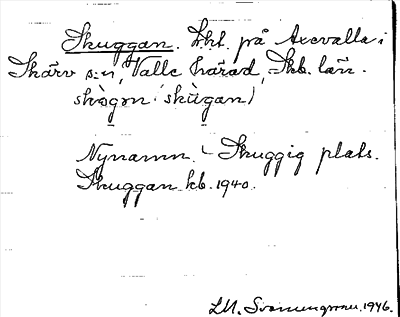 Skuggan. Lht. på Axevalla i
Skärv s:n, Valle härad, Skb. län.
skògon (skùgan)
Nynamn. Skuggig plats.
Skuggan kb. 1940.
1946.